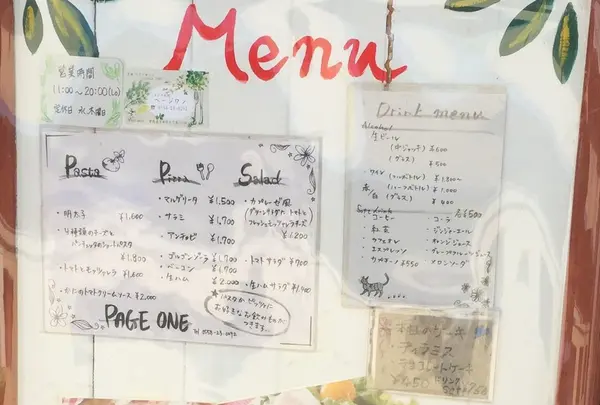 Menu
営業時間
11:00～20:00(Lo)
定休日 水.木曜日
ページワン
Pasta
・明太子 ¥1,600
・4種類のチーズと
¥1,800
・トマトとモッツァレラ ¥1,600
・かにのトマトクリームソース ¥2,000
Pizza
・マルゲリータ ¥1,500
・サラミ ¥1,700
・アンチョビ ¥1,700
・ゴルゴンゾーラ ¥1,700
・ベーコン ¥1,700
・生ハム ¥2,000
Salad
・カプレーゼ風
(グリーンサラダ、トマトと
フレッシュモッツァレラチーズ)
¥1,200
・トマトサラダ ¥700
・生ハムサラダ ¥1,900
パスタかピッツァに
お好きなお飲みものが
つきます。
PAGE ONE
Drink menu
Alcohol
生ビール
(中ジョッキ) ¥600
(グラス) ¥500
・ワイン
赤
白
(ハーフボトル) ¥1,000
(グラス) ¥400
Soft drink 各¥500
・コーヒー
・紅茶
・カフェオレ
・エスプレッソ
・カプチーノ ¥550
・コーラ
・ジンジャーエール
・オレンジジュース
・グレープフルーツジュース
・メロンソーダ
本日のケーキ
・ティラミス
・チョコレートケーキ